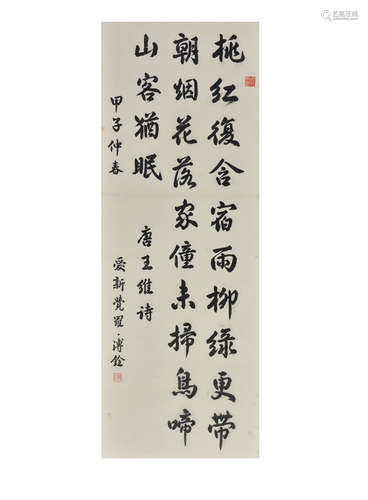 桃红復含宿雨柳绿更带
朝烟花落家僮未掃鳥啼
山客猶眠
唐王维诗
甲子仲春
爱新觉羅·溥銓